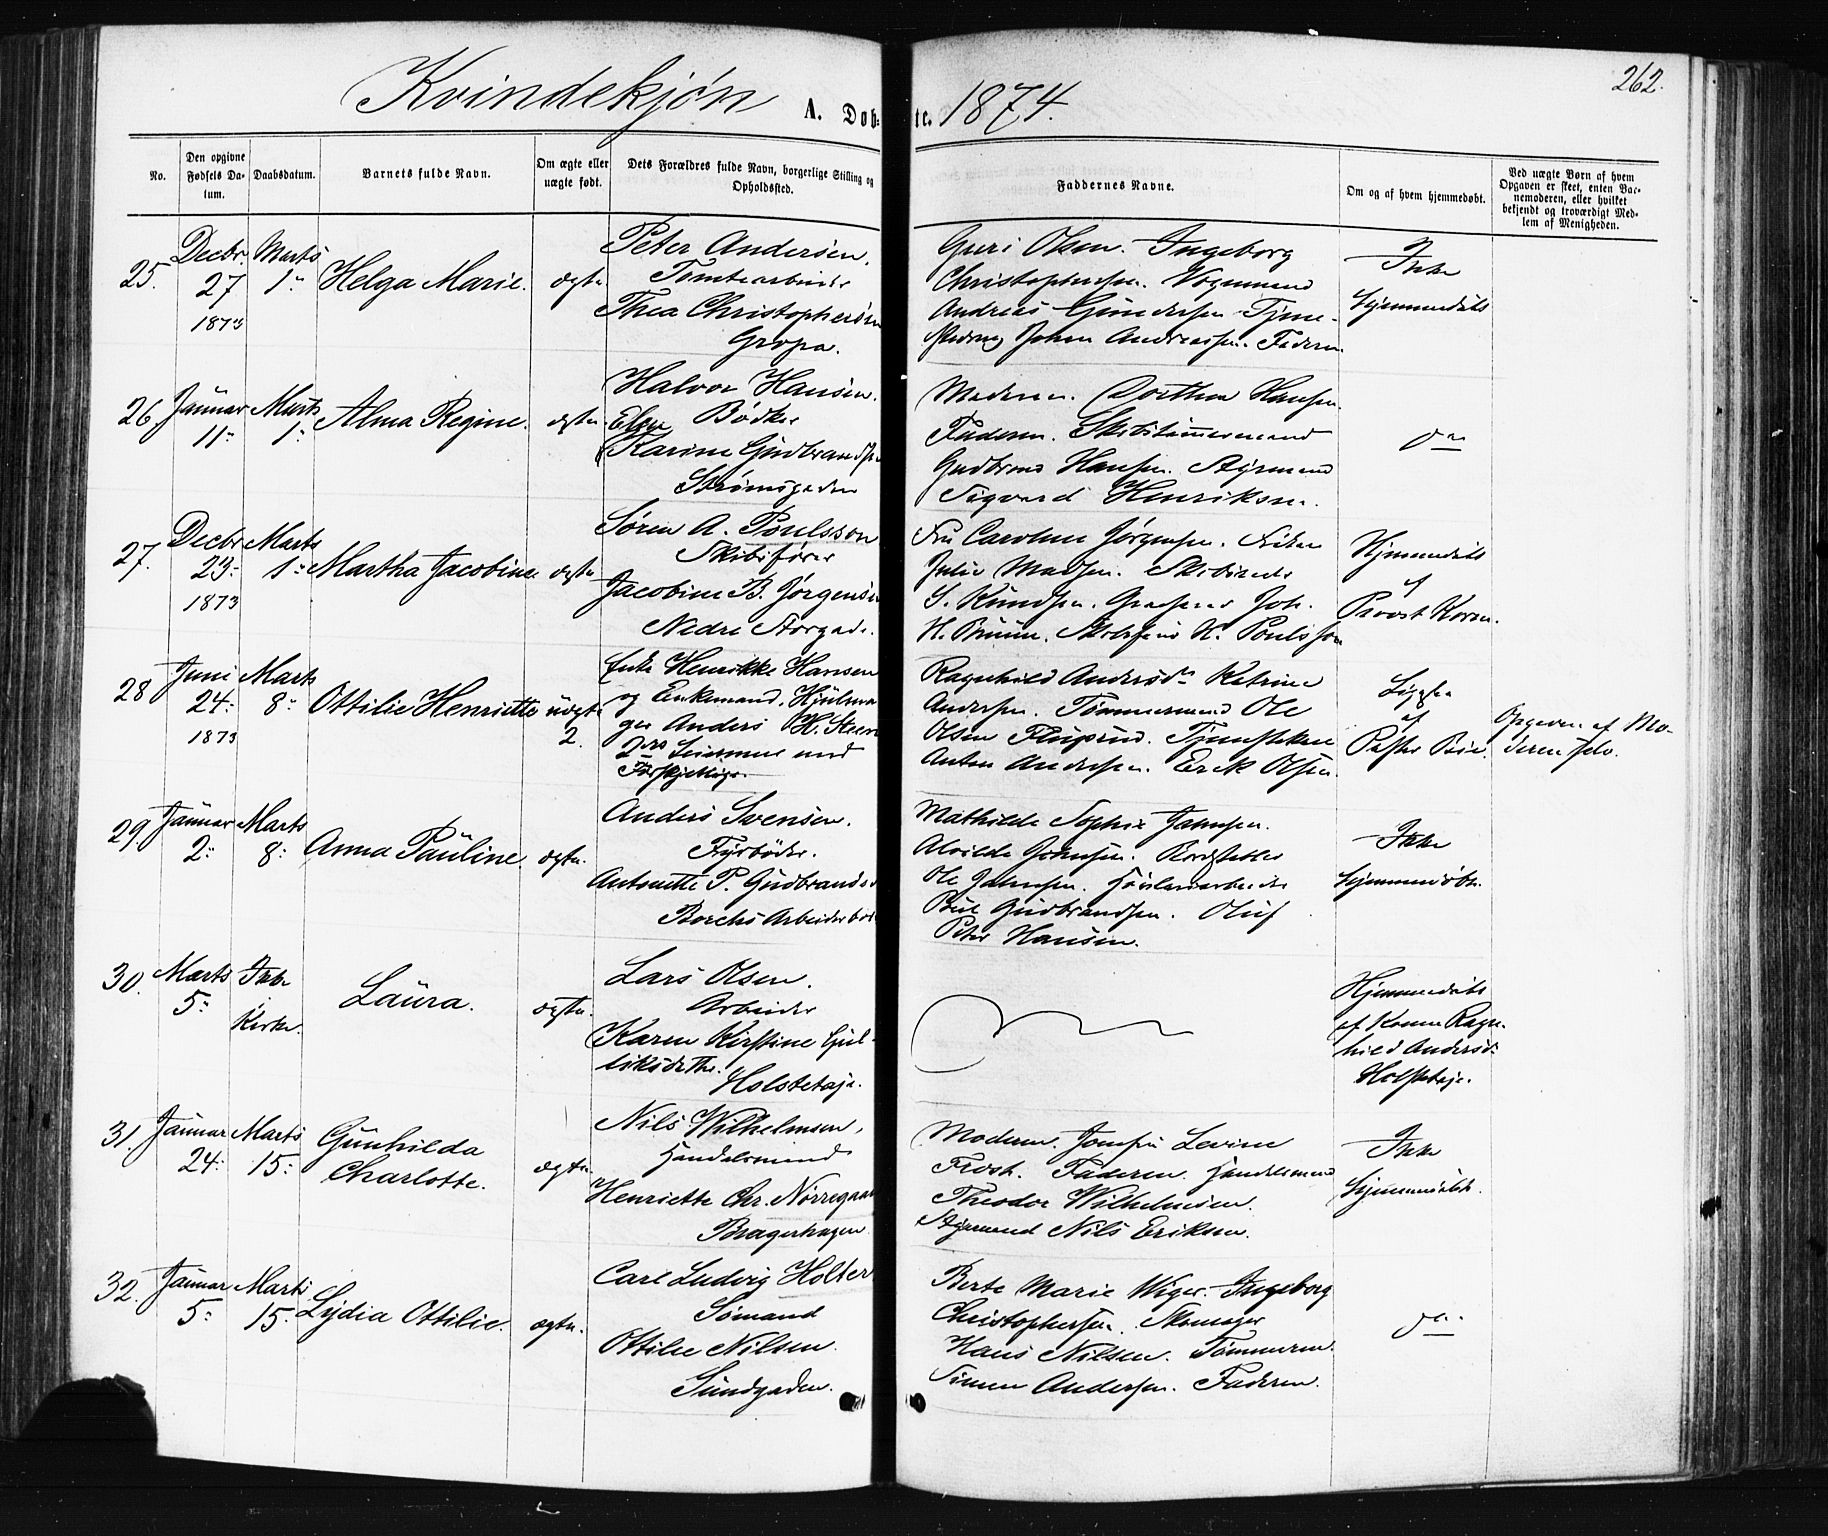 Kvindekjøn A. Døb- te. 1874. 262.
No.
Den opgivne Fødsels Da-tum.
Daabsdatum.
Barnets fulde Navn.
Om ægte eller uægte født.
Dets Forældres fulde Navn, borgerlige Stilling og Opholdssted.
Faddernes Navne.
Om og af hvem hjemmedøbt.
Ved uægte Børn af hvem Opgaven er skeet, enten Bar-nemoderen, eller hvilket bekjendt og troværdigt Med-lem af Menigheden.
25.
Decbr.
27
1873
Marts
1"
Helga Marie.
ægte
Peter Andersen.
Tomtearbeider
Thea Christophersen
Gropa.
Guri Olsen. Ingeborg
Christophersen. Vognmand
Andreas Gundersen Tjene-
Johan Andreassen. Faderen
Ikke
hjemmedøbt
26
Januar
11"
Marts
1"
Alma Regine.
ægte
Halvor Hansen.
Bødker
Karine Gudbrandsen
Strømsgaden
Moderen. Dorthea Hansen.
Faderen. Skibstømmermand
Gudbrand Hansen. Styrmand
Sigvard Henriksen.
do
27.
Decbr
23"
1873
Marts
1"
Martha Jacobine
ægte
Søren A. Poulsson
Skibsfører
Jacobine B. Jørgensen
Nedre Storgade.
Fru Caroline Jørgensen. Frøken
Julie Madsen. Skibsreder
S. Knudsen. Grosserer Joh.
H. Bruun. Skibsfører H. Poulsson
Hjemmedøbt
af
Provst Koren.
28
Juni
24"
1873
Marts
8"
Ottilie Henriette
uægte
2.
Enke Henrikke Hansen
og Enkemand, Hjulma-
ger Anders H. Steen
2det Leiermaal med
Forskjellige.
Ragnhild Andersd. Katrine
Andersen. Tømmermand Ole
Olsen. Tjenestekarl
Anton Andersen. Erik Olsen.
af
Pastor Bie.
Opgiven af Mo-
deren selv.
29.
Januar
2"
Marts
8"
Anna Pauline.
ægte.
Anders Svensen.
Fyrbøder.
Antonette P. Gudbrands
Borchs Arbeiderbol
Mathilde Sophie Jahnsen.
Alvilde Jahnsen. Bordstabler
Ole Jahnsen. Høvleriarbeider
Gudbrandsen. Oluf
Peter Hansen.
Ikke
hjemmedøbt.
30.
Marts
5"
Ikke
Kirke.
Laura.
ægte.
Lars Olsen.
Arbeider
Karen Kirstine Gul-
liksdatter.
Holstetøje.
Hjemmedøbt
af Konen Ragn-
hild Andersd.
Holstetøje.
31.
Januar
24"
Marts
15"
Gunhilda
Charlotte.
ægte
Nils Wilhelmsen,
Handelsmand
Henriette Chr. Nørregaard
Bragerhagen
Moderen. Jomfru Levine
Frost. Faderen. Handelsmand
Theodor Wilhelmsen.
Styrmand Nils Eriksen.
Ikke
hjemmedøbt.
32.
Januar
5"
Marts
15.
Lydia Ottilie.
ægte.
Carl Ludvig Holter
Sømand
Ottilie Nilsen.
Sundgaden.
Berte Marie Wiger. Ingeborg
Christophersen. Skomager
Hans Nilsen. Tømmerm.
Simen Andersen. Faderen.
do